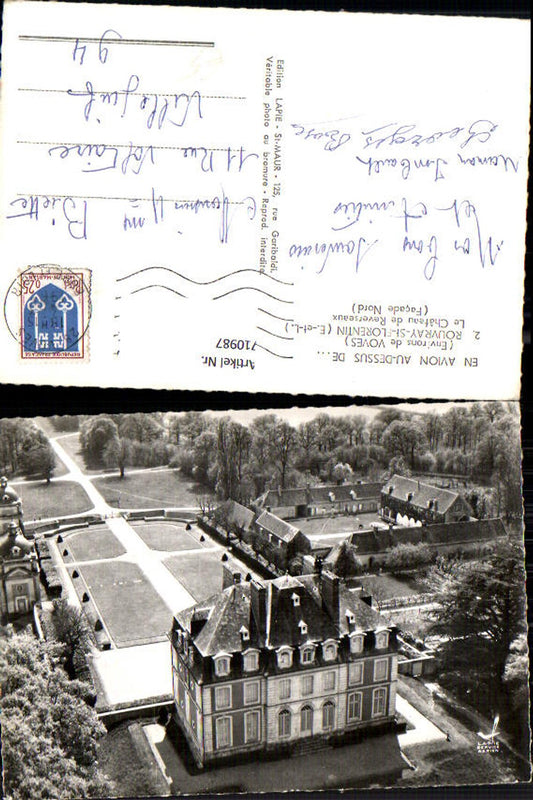 EN AVION AU-DESSUS DE...
(Environs de VOVES)
2. ROUVRAY-St-FLORENTIN (E.-et-L.)
Le Château de Reverseaux
(Façade Nord)
Artikel Nr.
710987
Edition LAPIE - St-MAUR - 123, rue Garibaldi.
Véritable photo au bromure - Reprod. interdite
Mon bons souvenirs
et Amitiés
Maman
Georges
0,25
REPUBLIQUE FRANCAISE
11 Rue Voltaire
Villejuif
94
LAPIE
SERVICE
AERIEN